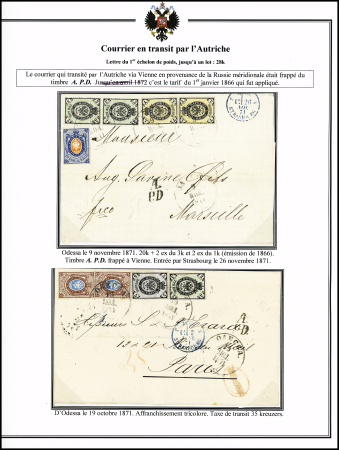 Courrier en transit par l'Autriche
Lettre du 1er échelon de poids, jusqu'à un lot : 28k
Le courrier qui transité par l'Autriche via Vienne en provenance de la Russie méridionale était frappé du
timbre A. P.D. Jusqu'en avril 1872 c'est le tarif du 1er janvier 1866 qui fut appliqué.
Monsieur
Aug.
fco
Marseille
A.
PD
Odessa le 9 novembre 1871. 20k + 2 ex du 3k et 2 ex du 1k (émission de 1866).
Timbre A. P.D. frappé à Vienne. Entrée par Strasbourg le 26 novembre 1871.
Paris
D'Odessa le 19 octobre 1871. Affranchissement tricolore. Taxe de transit 35 kreuzers.